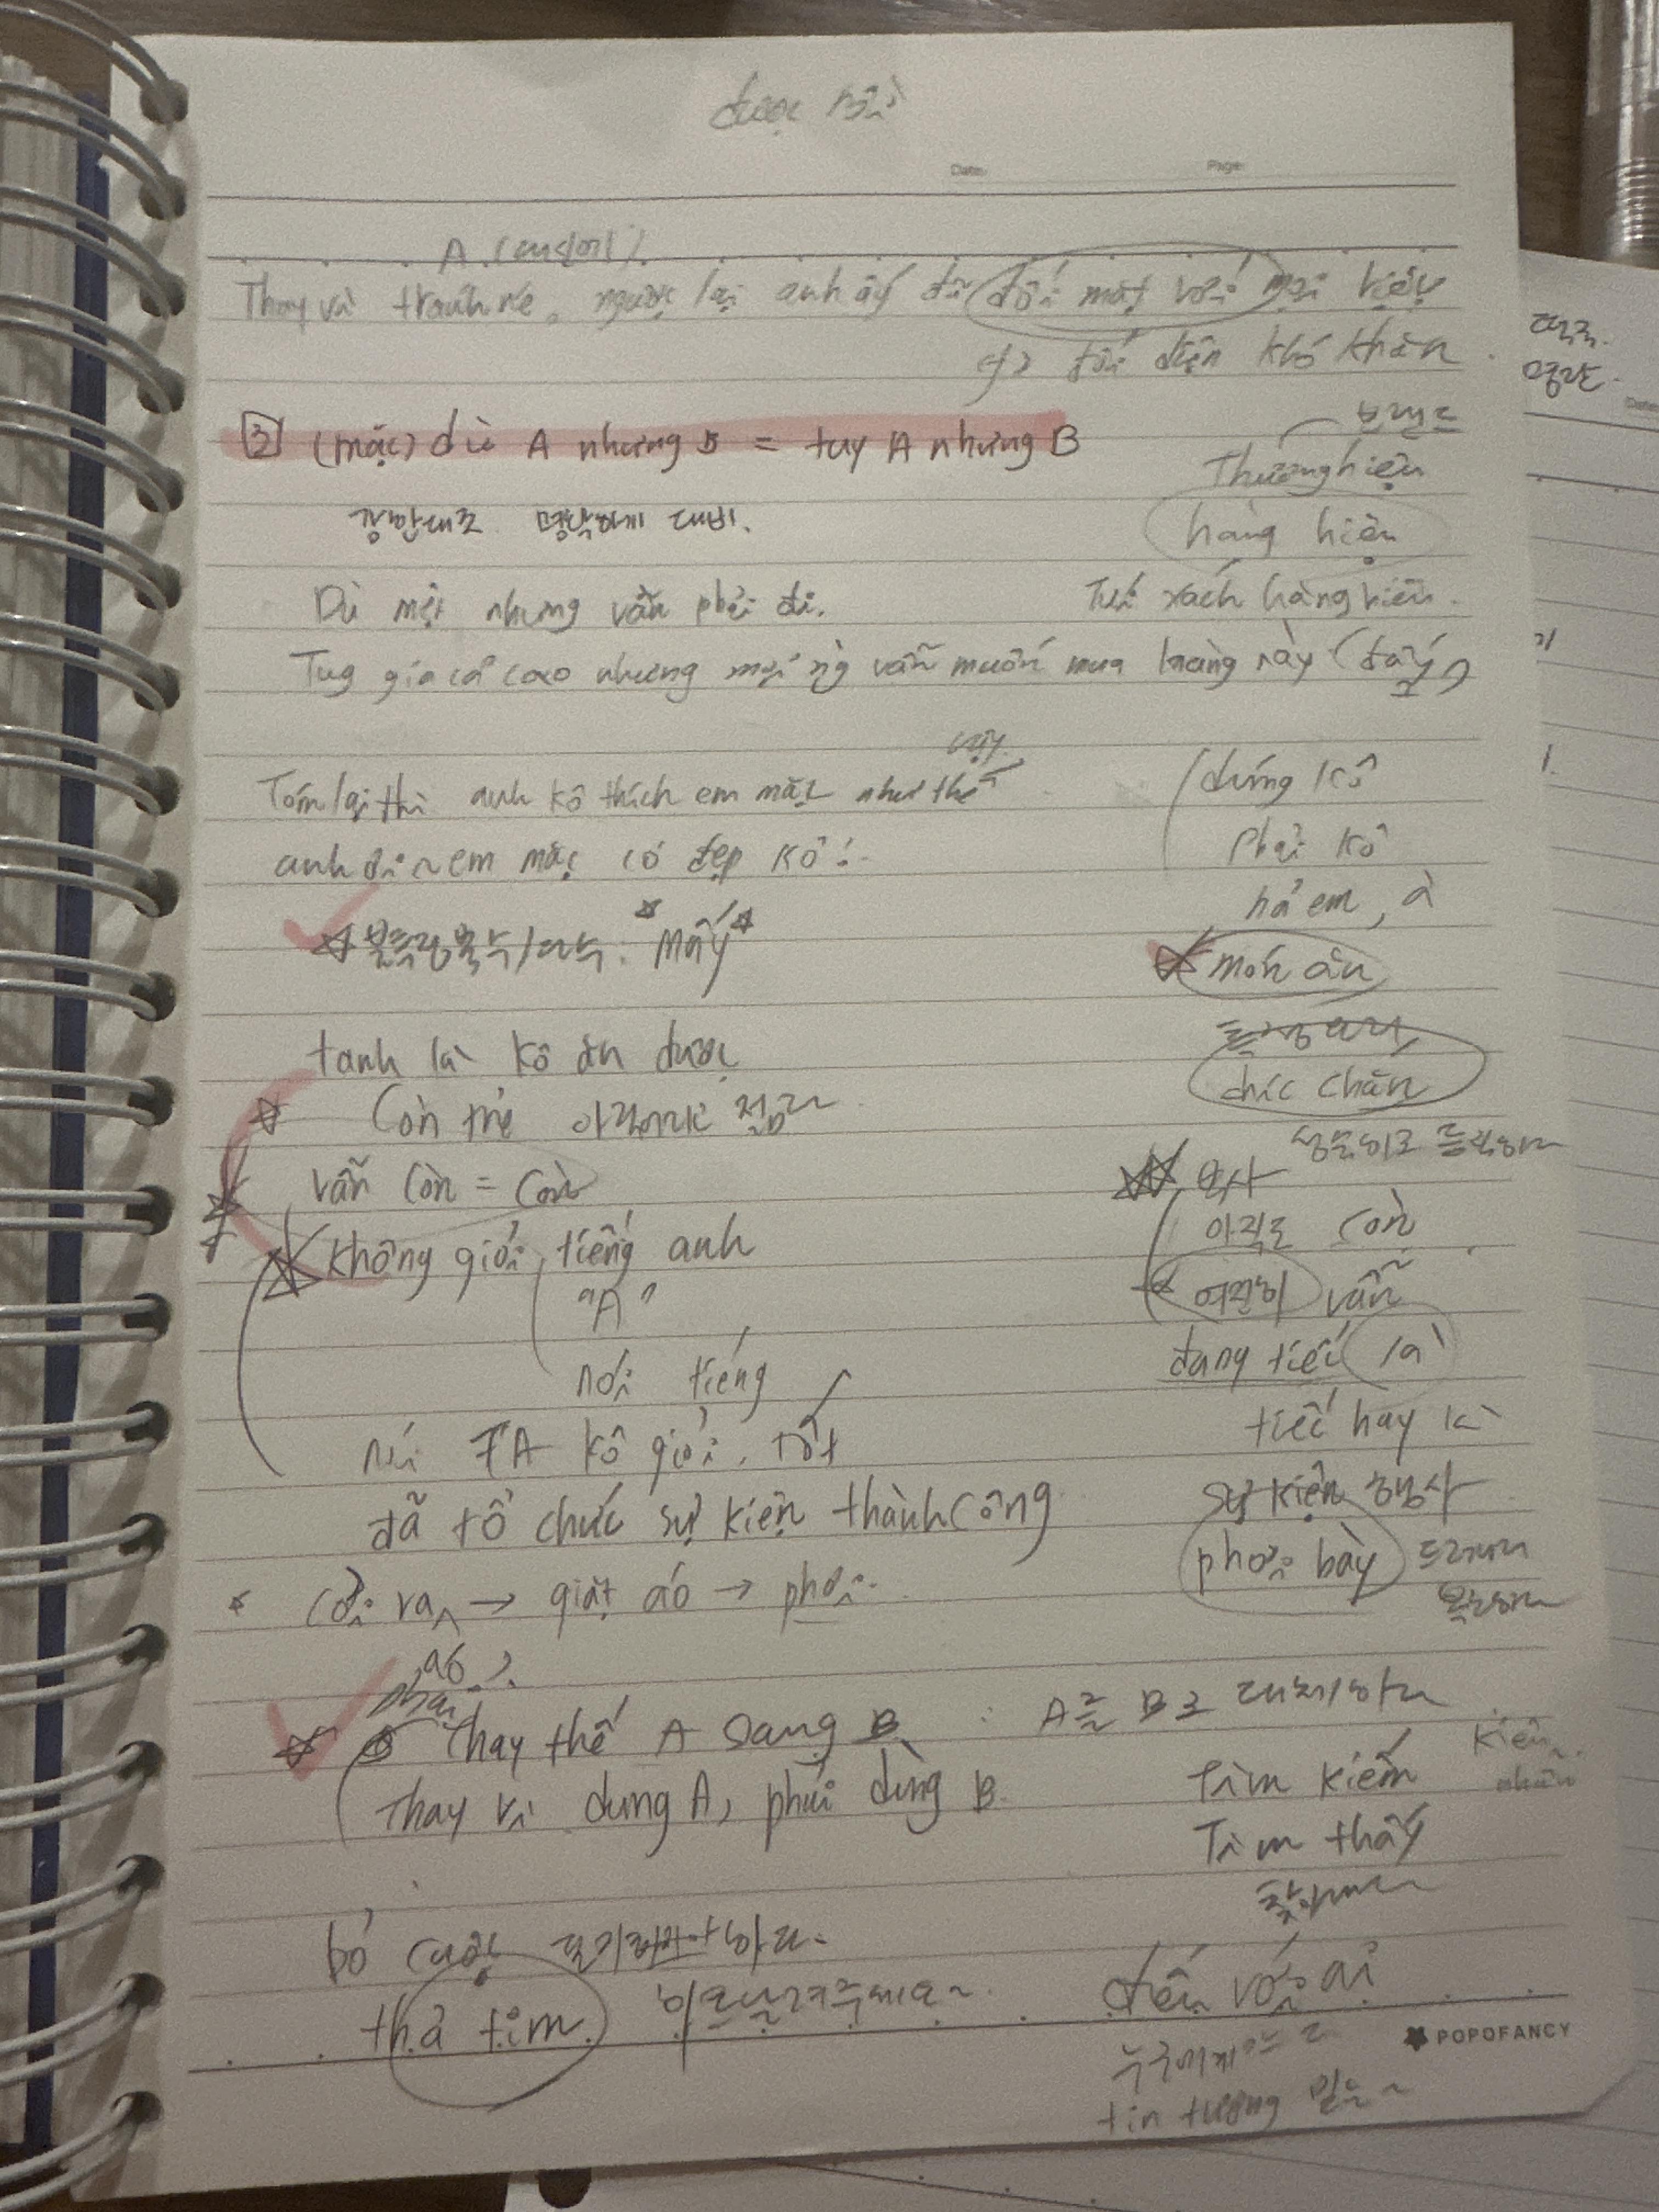 được rồi
Date. Page.
A
Thay vì tránh né, ngược lại anh ấy đã đối mặt với mọi
đối diện khó khăn
3 (mặc) dù A nhưng B = tuy A nhưng B
브랜드
Thương hiệu
강한대조 명확하게 대비.
hàng hiệu
Dù mệt nhưng vẫn phải đi.
Túi xách hàng hiệu.
Tuy giá cả cao nhưng mọi ng vẫn muốn mua hàng này (đấy)
vậy
Tóm lại thì anh kô thích em mặc như thế
anh ơi ~ em mặc có đẹp kô?
đúng kô
phải kô
hả em, à
불특정복수/다수: "mấy"
món ăn
tanh là kô ăn được
chắc chắn
còn trẻ 아직까지 젊다
vẫn còn = còn
부사
아직도 còn
여전히 vẫn
không giỏi tiếng anh
"A"
nói tiếng
nói TA kô giỏi, tốt
đang tiếc là
tiếc hay là
đã tổ chức sự kiện thành công
sự kiện 행사
phơi bày 드러내다
cởi ra → giặt áo → phơi.
áo
thay thế A sang B : A를 B로 대체하다
Thay vì dùng A, phải dùng B.
tìm kiếm
Tìm thấy
찾아내다
kiên nhẫn
bỏ cuộc 포기하다
thả tim 하트날려주세요~
đến với ai
누구에게
tin tưởng 믿을~
POPOFANCY